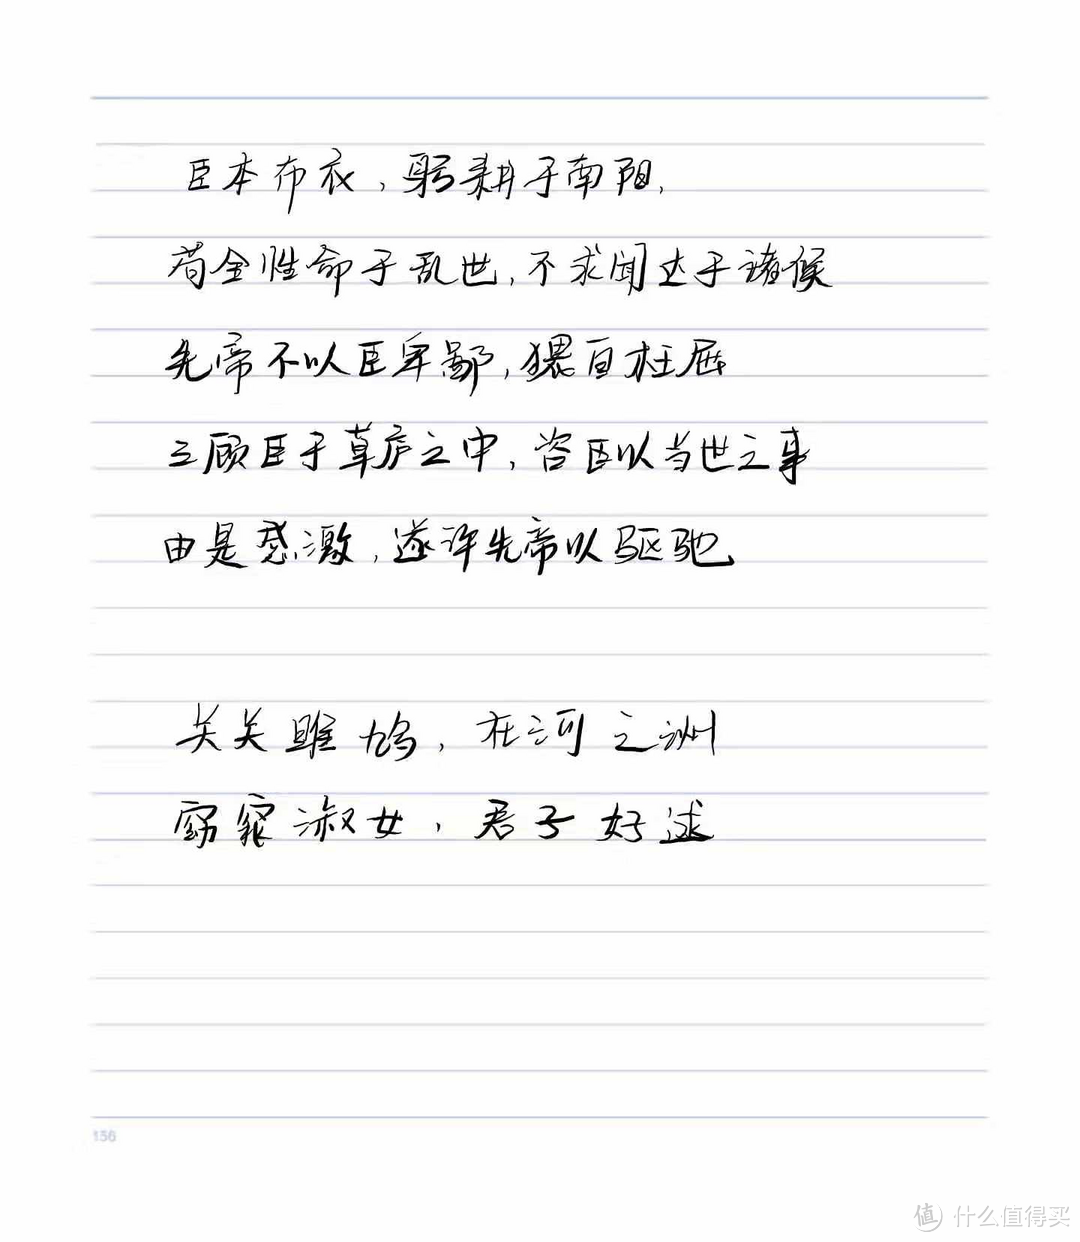 臣本布衣，躬耕于南阳，
苟全性命于乱世，不求闻达于诸侯
先帝不以臣卑鄙，猥自枉屈
三顾臣于草庐之中，咨臣以当世之事
由是感激，遂许先帝以驱驰
关关雎鸠，在河之洲
窈窕淑女，君子好逑
136
值 什么值得买